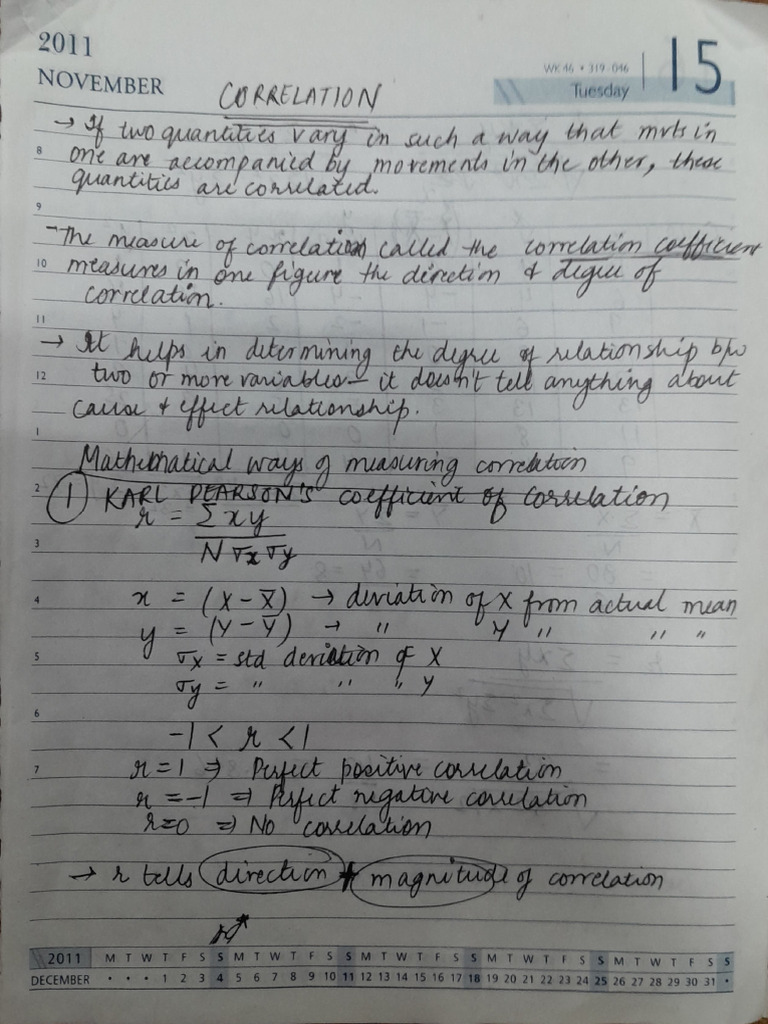 2011
NOVEMBER
WK 46 • 319-046
Tuesday
15
CORRELATION
→ If two quantities vary in such a way that mvts in
8 one are accompanied by movements in the other, these
quantities are correlated.
9
- The measure of correlation called the correlation coefficient
10 measures in one figure the direction & degree of
correlation.
11
→ It helps in determining the degree of relationship b/w
12 two or more variables – it doesn't tell anything about
cause & effect relationship.
1
Mathematical ways of measuring correlation
2 ① KARL PEARSON'S coefficient of correlation
r = Σxy
3 N σx σy
4 x = (X - X̅) → deviation of X from actual mean
y = (Y - Y̅) → " Y " " "
5 σx = std deviation of X
σy = " " " Y
6
-1 < r < 1
7 r=1 ⇒ Perfect positive correlation
r=-1 ⇒ Perfect negative correlation
r=0 ⇒ No correlation
→ r tells direction + magnitude of correlation
2011 M T W T F S S M T W T F S S M T W T F S S M T W T F S S M T W T F S S
DECEMBER • • • 1 2 3 4 5 6 7 8 9 10 11 12 13 14 15 16 17 18 19 20 21 22 23 24 25 26 27 28 29 30 31 •